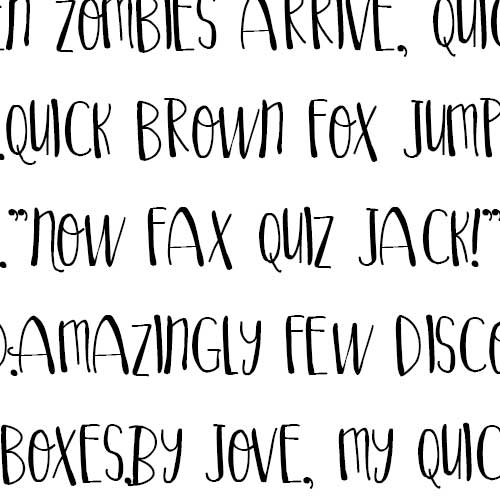 EN ZOMBIES ARRIVE, QUIC
.QUICK BROWN FOX JUMP
."NOW FAX QUIZ JACK!"
D.AMAZINGLY FEW DISCO
BOXES.BY JOVE, MY QUIC